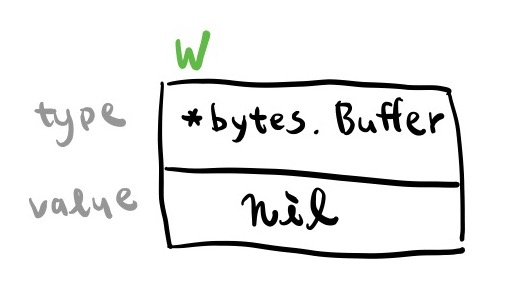 W
type *bytes.Buffer
value nil